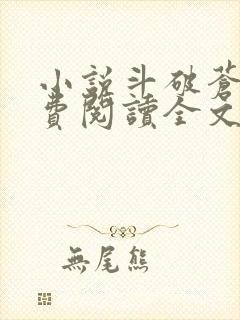 小說斗破蒼
費閱讀全文
無尾熊